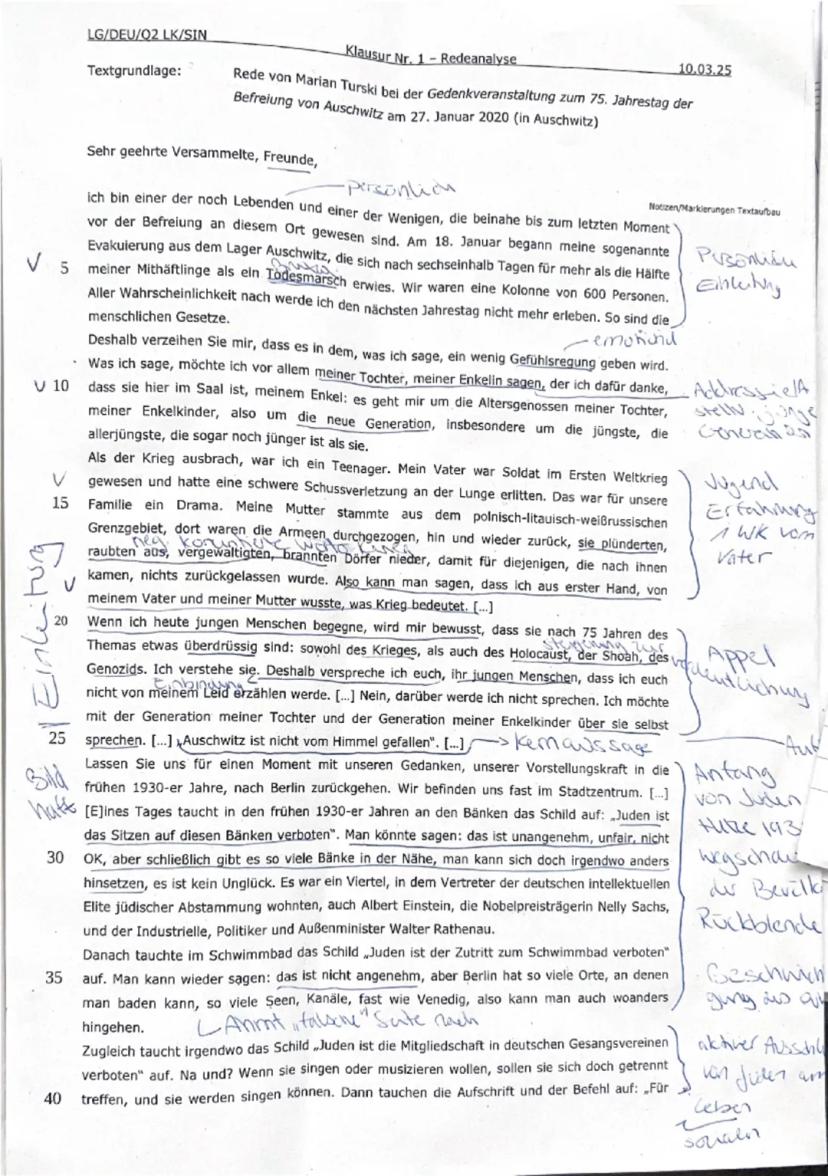 LG/DEU/Q2 LK/SIN
Klausur Nr. 1 – Redeanalyse
10.03.25
Textgrundlage: Rede von Marian Turski bei der Gedenkveranstaltung zum 75. Jahrestag der
Befreiung von Auschwitz am 27. Januar 2020 (in Auschwitz)
Sehr geehrte Versammelte, Freunde,
persönlich
Notizen/Markierungen Textaufbau
ich bin einer der noch Lebenden und einer der Wenigen, die beinahe bis zum letzten Moment
vor der Befreiung an diesem Ort gewesen sind. Am 18. Januar begann meine sogenannte
Evakuierung aus dem Lager Auschwitz, die sich nach sechseinhalb Tagen für mehr als die Hälfte
5 meiner Mithäftlinge als ein Todesmarsch erwies. Wir waren eine Kolonne von 600 Personen.
Aller Wahrscheinlichkeit nach werde ich den nächsten Jahrestag nicht mehr erleben. So sind die
menschlichen Gesetze.
Einleitung
emotional
Deshalb verzeihen Sie mir, dass es in dem, was ich sage, ein wenig Gefühlsregung geben wird.
Was ich sage, möchte ich vor allem meiner Tochter, meiner Enkelin sagen, der ich dafür danke,
10 dass sie hier im Saal ist, meinem Enkel: es geht mir um die Altersgenossen meiner Tochter,
meiner Enkelkinder, also um die neue Generation, insbesondere um die jüngste, die
allerjüngste, die sogar noch jünger ist als sie.
Generation
Als der Krieg ausbrach, war ich ein Teenager. Mein Vater war Soldat im Ersten Weltkrieg
gewesen und hatte eine schwere Schussverletzung an der Lunge erlitten. Das war für unsere
15 Familie ein Drama. Meine Mutter stammte aus dem polnisch-litauisch-weißrussischen
Grenzgebiet, dort waren die Armeen durchgezogen, hin und wieder zurück, sie plünderten,
raubten aus, vergewaltigten, brannten Dörfer nieder, damit für diejenigen, die nach ihnen
kamen, nichts zurückgelassen wurde. Also kann man sagen, dass ich aus erster Hand, von
meinem Vater und meiner Mutter wusste, was Krieg bedeutet. [...]
Jugend
Erfahrung
1 WK vom
Vater
Einleitung
20 Wenn ich heute jungen Menschen begegne, wird mir bewusst, dass sie nach 75 Jahren des
Themas etwas überdrüssig sind: sowohl des Krieges, als auch des Holocaust, der Shoah, des
Genozids. Ich verstehe sie. Deshalb verspreche ich euch, ihr jungen Menschen, dass ich euch
Einbindung
nicht von meinem Leid erzählen werde. [...] Nein, darüber werde ich nicht sprechen. Ich möchte
mit der Generation meiner Tochter und der Generation meiner Enkelkinder über sie selbst
25 sprechen. [...] „Auschwitz ist nicht vom Himmel gefallen“. [...]
Kernaussage
Appel
Bild
haft
Lassen Sie uns für einen Moment mit unseren Gedanken, unserer Vorstellungskraft in die
frühen 1930-er Jahre, nach Berlin zurückgehen. Wir befinden uns fast im Stadtzentrum. [...]
[E]ines Tages taucht in den frühen 1930-er Jahren an den Bänken das Schild auf: „Juden ist
das Sitzen auf diesen Bänken verboten“. Man könnte sagen: das ist unangenehm, unfair, nicht
30 OK, aber schließlich gibt es so viele Bänke in der Nähe, man kann sich doch irgendwo anders
hinsetzen, es ist kein Unglück. Es war ein Viertel, in dem Vertreter der deutschen intellektuellen
Elite jüdischer Abstammung wohnten, auch Albert Einstein, die Nobelpreisträgerin Nelly Sachs,
und der Industrielle, Politiker und Außenminister Walter Rathenau.
Anfang
von Juden
Rückblende
Danach tauchte im Schwimmbad das Schild „Juden ist der Zutritt zum Schwimmbad verboten“
35 auf. Man kann wieder sagen: das ist nicht angenehm, aber Berlin hat so viele Orte, an denen
man baden kann, so viele Seen, Kanäle, fast wie Venedig, also kann man auch woanders
hingehen.
Ahmt „falsche“ Seite nach
Zugleich taucht irgendwo das Schild „Juden ist die Mitgliedschaft in deutschen Gesangsvereinen
verboten“ auf. Na und? Wenn sie singen oder musizieren wollen, sollen sie sich doch getrennt
40 treffen, und sie werden singen können. Dann tauchen die Aufschrift und der Befehl auf: „Für
Leben
sozialen